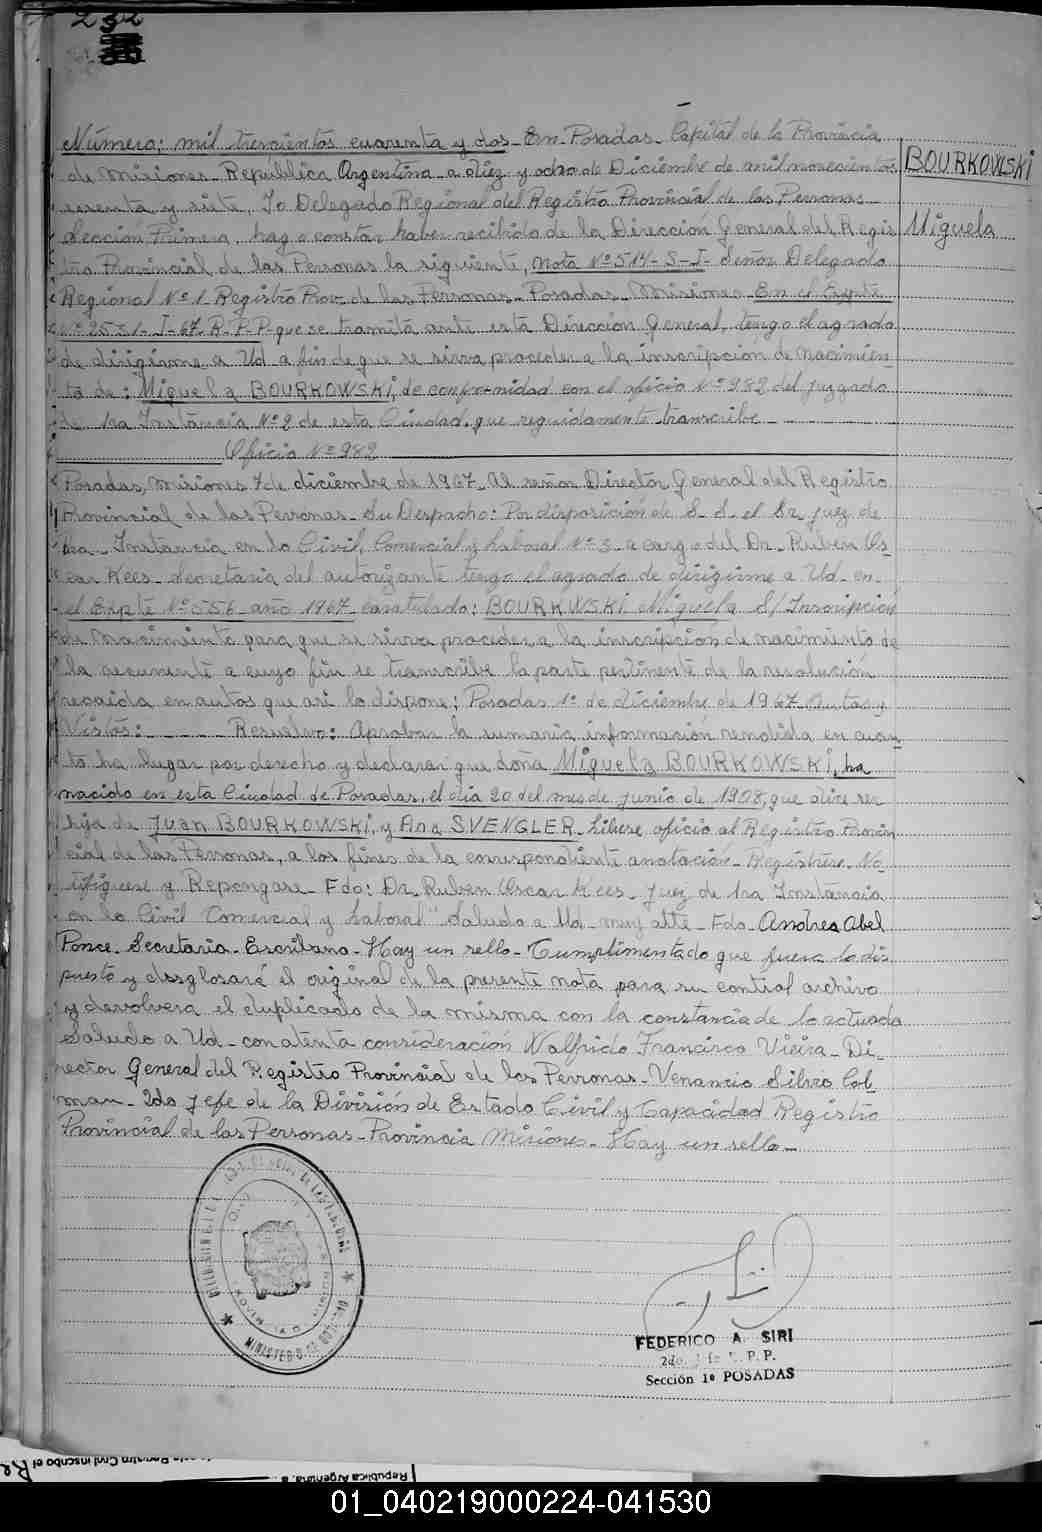 232
Número: mil trescientos cuarenta y dos_ En Posadas_ Capital de la Provincia
de Misiones_ República Argentina_ a diez y ocho de Diciembre de mil novecientos
BOURKOWSKI
sesenta y siete, Yo Delegado Regional del Registro Provincial de las Personas_
Sección Primera, hago constar haber recibido de la Dirección General del Regis
Miguela
tro Provincial de las Personas la siguiente, nota Nº 514-S-I- Señor Delegado
Regional Nº 1_ Registro Prov. de las Personas_ Posadas_ Misiones_ En el Expte
I-67_R.P.P. que se tramita ante esta Dirección General, tengo el agrado
de dirigirme a Ud_ a fin de que se sirva proceder a la inscripción de nacimien_
to de: Miguela BOURKOWSKI, de conformidad con el oficio Nº 982 del juzgado
de 1ra Instancia Nº 2 de esta Ciudad, que seguidamente transcribe
Oficio Nº 982
Posadas, Misiones 7 de diciembre de 1967_ Al señor Director General del Registro
Provincial de las Personas_ Su Despacho: Por disposición de S_ S_ el Sr juez de
1ra_ Instancia en lo Civil, Comercial y Laboral Nº 3_ a cargo del Dr_ Ruben Os_
car Kees_ Secretaria del autorizante tengo el agrado de dirigirme a Ud_ en_
el Expte Nº 556_ año 1967_ caratulado: BOURKWSKI Miguela S/ Inscripción
de Nacimiento para que se sirva proceder a la inscripción de nacimiento de
la recurrente a cuyo fin se transcribe la parte pertinente de la resolución
recaida en autos que asi lo dispone: Posadas 1º de diciembre de 1967_ Autos y
Vistos: _ _ _ _ Resuelvo: Aprobar la sumaria información rendida en cuan
to ha lugar por derecho y declarar que doña Miguela BOURKOWSKI, ha
nacido en esta Ciudad de Posadas, el dia 20 del mes de junio de 1908, que dice ser
hija de Juan BOURKOWSKI, y Ana SVENGLER_ Librese oficio al Registro Provin
cial de las Personas, a los fines de la correspondiente anotación_ Registrese_ No_
tifiquese y Repongase_ Fdo: Dr_ Ruben Oscar Kees_ Juez de 1ra Instancia
en lo Civil Comercial y Laboral" Saludo a Ud_ muy atte_ Fdo_ Andrea Abel
Ponce_ Secretaria_ Escribana_ Hay un sello_ Cumplimentado que fuera lo dis
puesto y desglosará el original de la presente nota para su control archivo
y devolvera el duplicado de la misma con la constancia de lo actuado
Saludo a Ud_ con atenta consideración Walfrido Francisco Vieira_ Di_
rector General del Registro Provincial de las Personas_ Venancio Silvio Col_
man_ 2do Jefe de la División de Estado Civil y Capacidad Registro
Provincial de las Personas_ Provincia Misiones_ Hay un sello_
MINISTERIO DE GOBIERNO
FEDERICO A. SIRI
2do. P.P.
Sección 1ª POSADAS
Registro Civil inscribo el
República Argentina, a
01_040219000224-041530